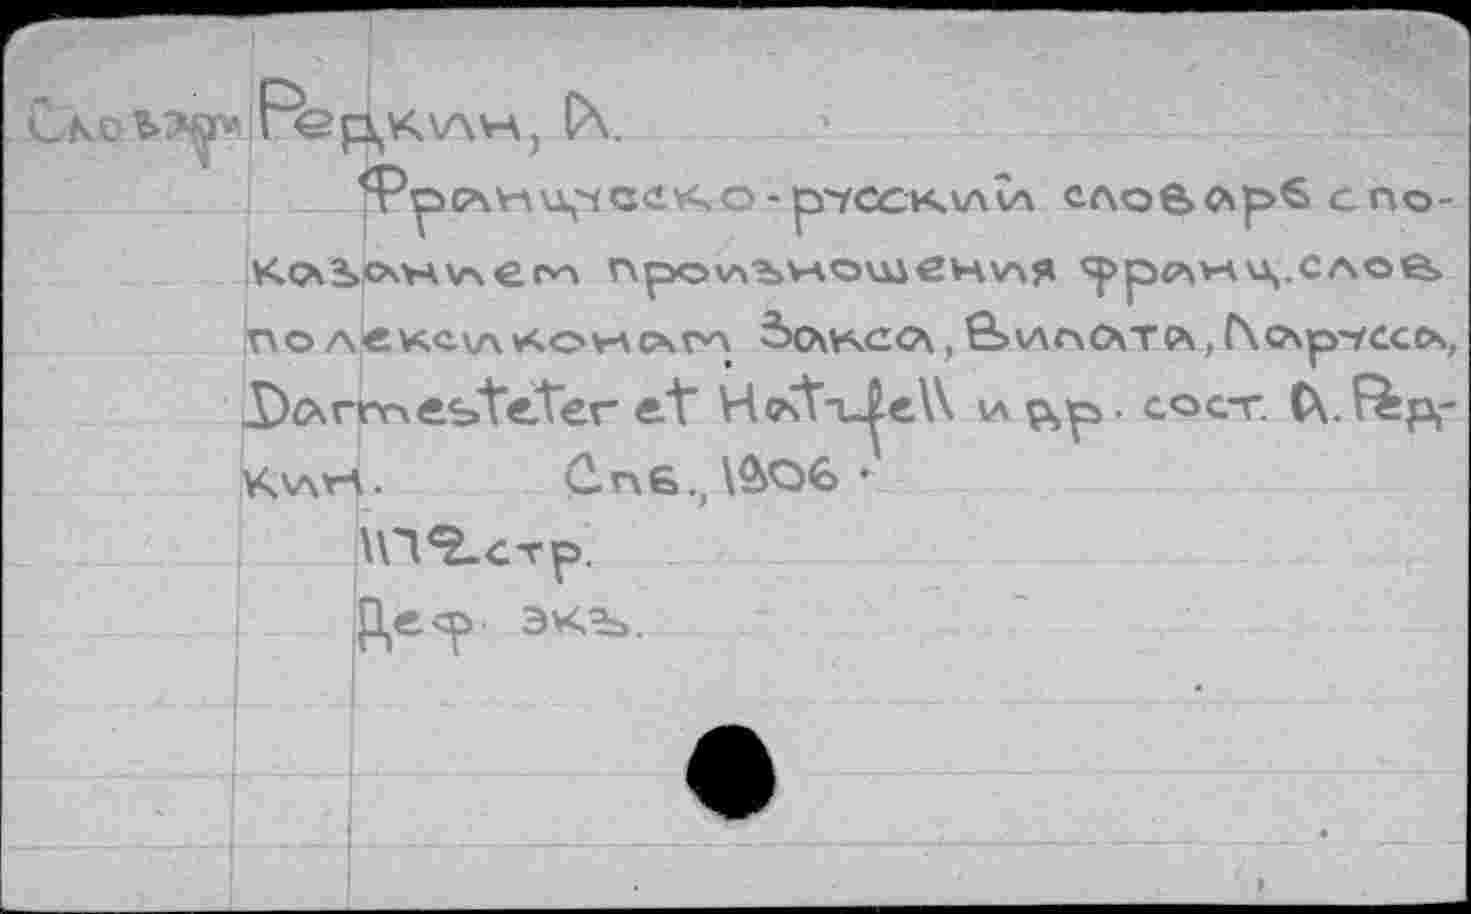 Словари Редкин, А.
Французско-русский словарь с по-
казанием произношения франц. слов
по лексиконам Закса, Вилатта, Ларусса,
Darmesteter et Hatzfell и др. сост. А. Ред-
кин. Спб., 1906.
1172 стр.
Деф. экз.